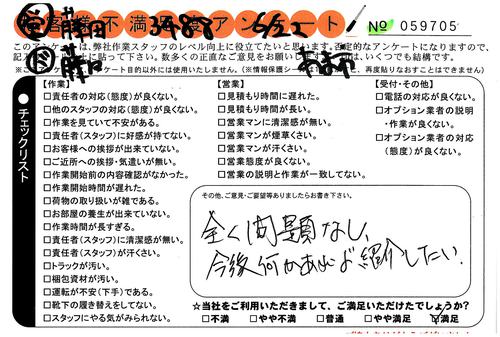 お客様不満足度アンケート No 059705
このアンケートは、弊社作業スタッフのレベル向上に役立てたいと思います。否定的なアンケートになりますので、
数多くの正直なご意見をお願いします。
チェックリスト
【作業】
□責任者の対応(態度)が良くない。
□他のスタッフの対応(態度)が良くない。
□作業を見ていて不安がある。
□責任者(スタッフ)に好感が持てない。
□お客様への挨拶が出来ていない。
□ご近所への挨拶・気遣いが無い。
□作業開始前の内容確認がなかった。
□作業開始時間が遅れた。
□荷物の取り扱いが雑である。
□お部屋の養生が出来ていない。
□作業時間が長すぎる。
□責任者(スタッフ)に清潔感が無い。
□責任者(スタッフ)が汗くさい。
□トラックが汚い。
□梱包資材が汚い。
□運転が不安(下手)である。
□靴下の履き替えをしてない。
□スタッフにやる気がみられない。
【営業】
□見積もり時間に遅れた。
□見積もり時間が長い。
□営業マンに清潔感が無い。
□営業マンが煙草くさい。
□営業マンが汗くさい。
□営業態度が良くない。
□営業の説明と作業が一致してない。
【受付・その他】
□電話の対応が良くない。
□オプション業者の説明
・作業が良くない。
□オプション業者の対応
(態度)が良くない。
その他、ご意見・ご要望等ありましたらお書き下さい。
全く問題なし、
今後何かあればご紹介したい。
☆当社をご利用いただきまして、ご満足いただけたでしょうか?
□不満 □やや不満 □普通 □やや満足 □満足